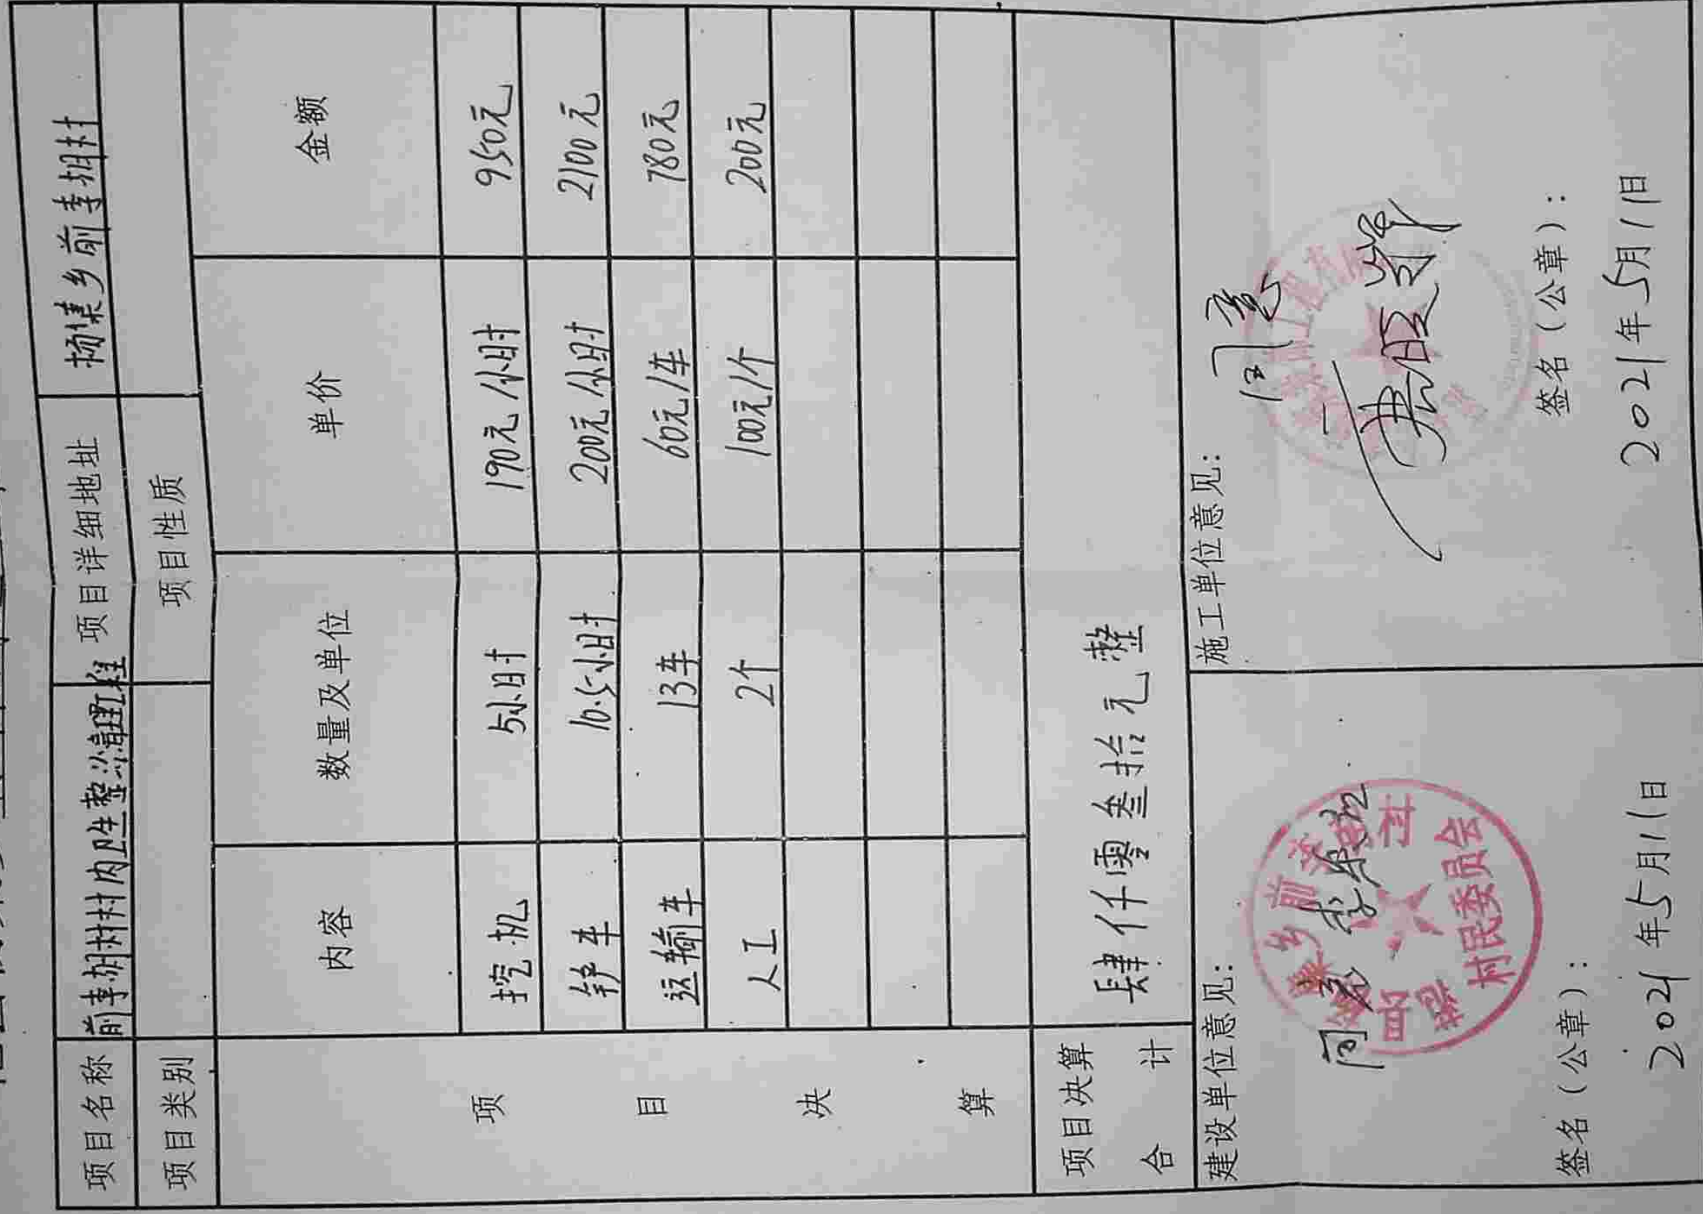 项目名称 前李胡村村内卫生整治清理工程 项目详细地址 杨集乡前李胡村
项目类别 项目性质
项目决算
内容 数量及单位 单价 金额
挖机 5小时 190元/小时 950元
铲车 10.5小时 200元/小时 2100元
运输车 13车 60元/车 780元
人工 2个 100元/个 200元
项目决算合计 肆仟零叁拾元整
建设单位意见：
同意
村民委员会
签名（公章）：
2021年5月11日
施工单位意见：
同意
签名（公章）：
2021年5月11日